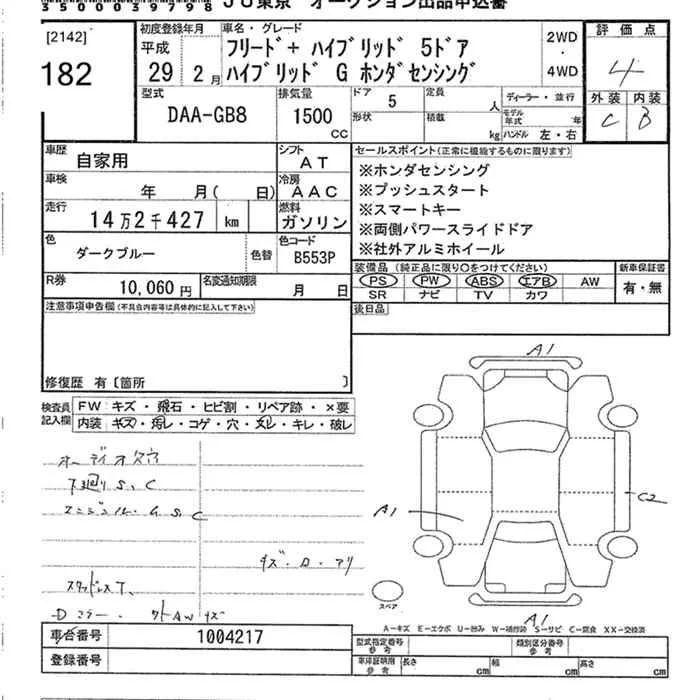 35000039798 JU東京 オークション出品申込書
[2142]
182
初度登録年月
平成
29 2月
車名・グレード
フリード+ ハイブリッド 5ドア
ハイブリッド G ホンダセンシング
2WD
・
4WD
評価点
4
外装 内装
C B
型式
DAA-GB8
排気量
1500
CC
ドア
5
定員
人
ディーラー・並行
形状
積載
kg
モデル年式
年
ハンドル 左・右
車歴
自家用
シフト
AT
車検
年 月( 日)
冷房
AAC
走行
14万2千427 km
燃料
ガソリン
色
ダークブルー
色替
色コード
B553P
R券
10,060円
名変通知期限
月 日
セールスポイント(正常に機能するものに限ります)
※ホンダセンシング
※プッシュスタート
※スマートキー
※両側パワースライドドア
※社外アルミホイール
装備品 (純正品に限り○をつけてください)
PS PW ABS エアB AW
SR ナビ TV カワ
新車保証書
有・無
後日品
注意事項申告欄(不具合内容等は具体的に記入して下さい)
修復歴 有〔箇所 〕
検査員
記入欄
FW キズ・飛石・ヒビ割・リペア跡・×要
内装 キズ・汚レ・コゲ・穴・スレ・キレ・破レ
オーディオ欠
下廻りS、C
エンジンルームS、C
キズ・凹・アリ
スタッドレスT、
Dミラー 外AWキズ
A1
A1
C2
A1
スペア
A-キズ E-エクボ U-凹み W-補修跡 S-サビ C-腐食 XX-交換済
車台番号 1004217
登録番号
型式指定番号
参考
類別区分番号
参考
車庫証明用
参考
長さ cm 幅 cm 高さ cm